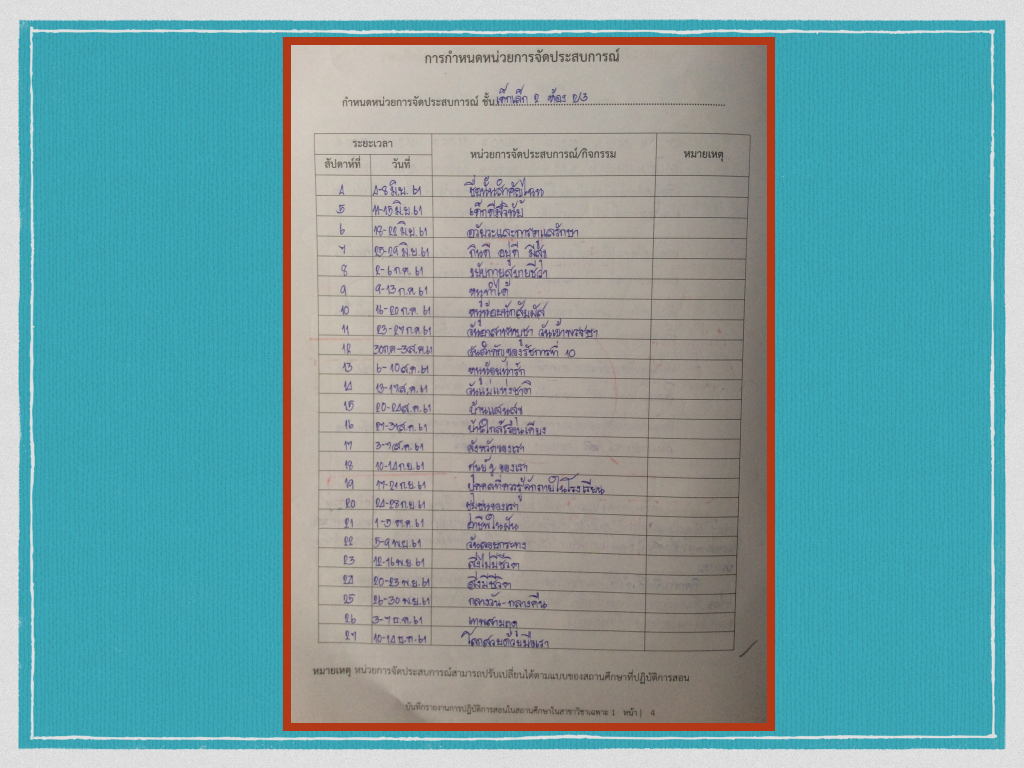 การกำหนดหน่วยการจัดประสบการณ์
กำหนดหน่วยการจัดประสบการณ์ ชั้น เด็กเล็ก 2 ห้อง 2/3
ระยะเวลา
สัปดาห์ที่ วันที่ หน่วยการจัดประสบการณ์/กิจกรรม หมายเหตุ
4 4-8 มิ.ย. 61
5 11-15 มิ.ย. 61 เด็กดีมีวินัย
6 18-22 มิ.ย. 61 อวัยวะและการดูแลรักษา
7 25-29 มิ.ย. 61 กินดี อยู่ดี มีสุข
8 2-6 ก.ค. 61 ขยับกายสบายชีวา
9 9-13 ก.ค. 61 หนูทำได้
10 16-20 ก.ค. 61 หนูน้อยนักสัมผัส
11 23-27 ก.ค. 61 วันอาสาฬหบูชา วันเข้าพรรษา
12 30 ก.ค.-3 ส.ค. 61 วันสำคัญของรัชการที่ 10
13 6-10 ส.ค. 61 หนูน้อยน่ารัก
14 13-17 ส.ค. 61 วันแม่แห่งชาติ
15 20-24 ส.ค. 61 บ้านแสนสุข
16 27-31 ส.ค. 61 บ้านใกล้เรือนเคียง
17 3-7 ส.ค. 61 จังหวัดของเรา
18 10-14 ก.ย. 61 ของเรา
19 17-21 ก.ย. 61 บุคคลที่ควรรู้จักภายในโรงเรียน
20 24-28 ก.ย. 61 ชุมชนของเรา
21 1-5 ต.ค. 61 อาชีพในฝัน
22 5-9 พ.ย. 61 วันลอยกระทง
23 12-16 พ.ย. 61 สิ่งไม่มีชีวิต
24 20-23 พ.ย. 61 สิ่งมีชีวิต
25 26-30 พ.ย. 61 กลางวัน-กลางคืน
26 3-7 ธ.ค. 61 เทพสามฤดู
27 10-14 ธ.ค. 61 โลกสวยด้วยมือเรา
หมายเหตุ หน่วยการจัดประสบการณ์สามารถปรับเปลี่ยนได้ตามแบบของสถานศึกษาที่ปฏิบัติการสอน
บันทึกรายงานการปฏิบัติการสอนในสถานศึกษาในสาขาวิชาเฉพาะ 1 หน้า | 4